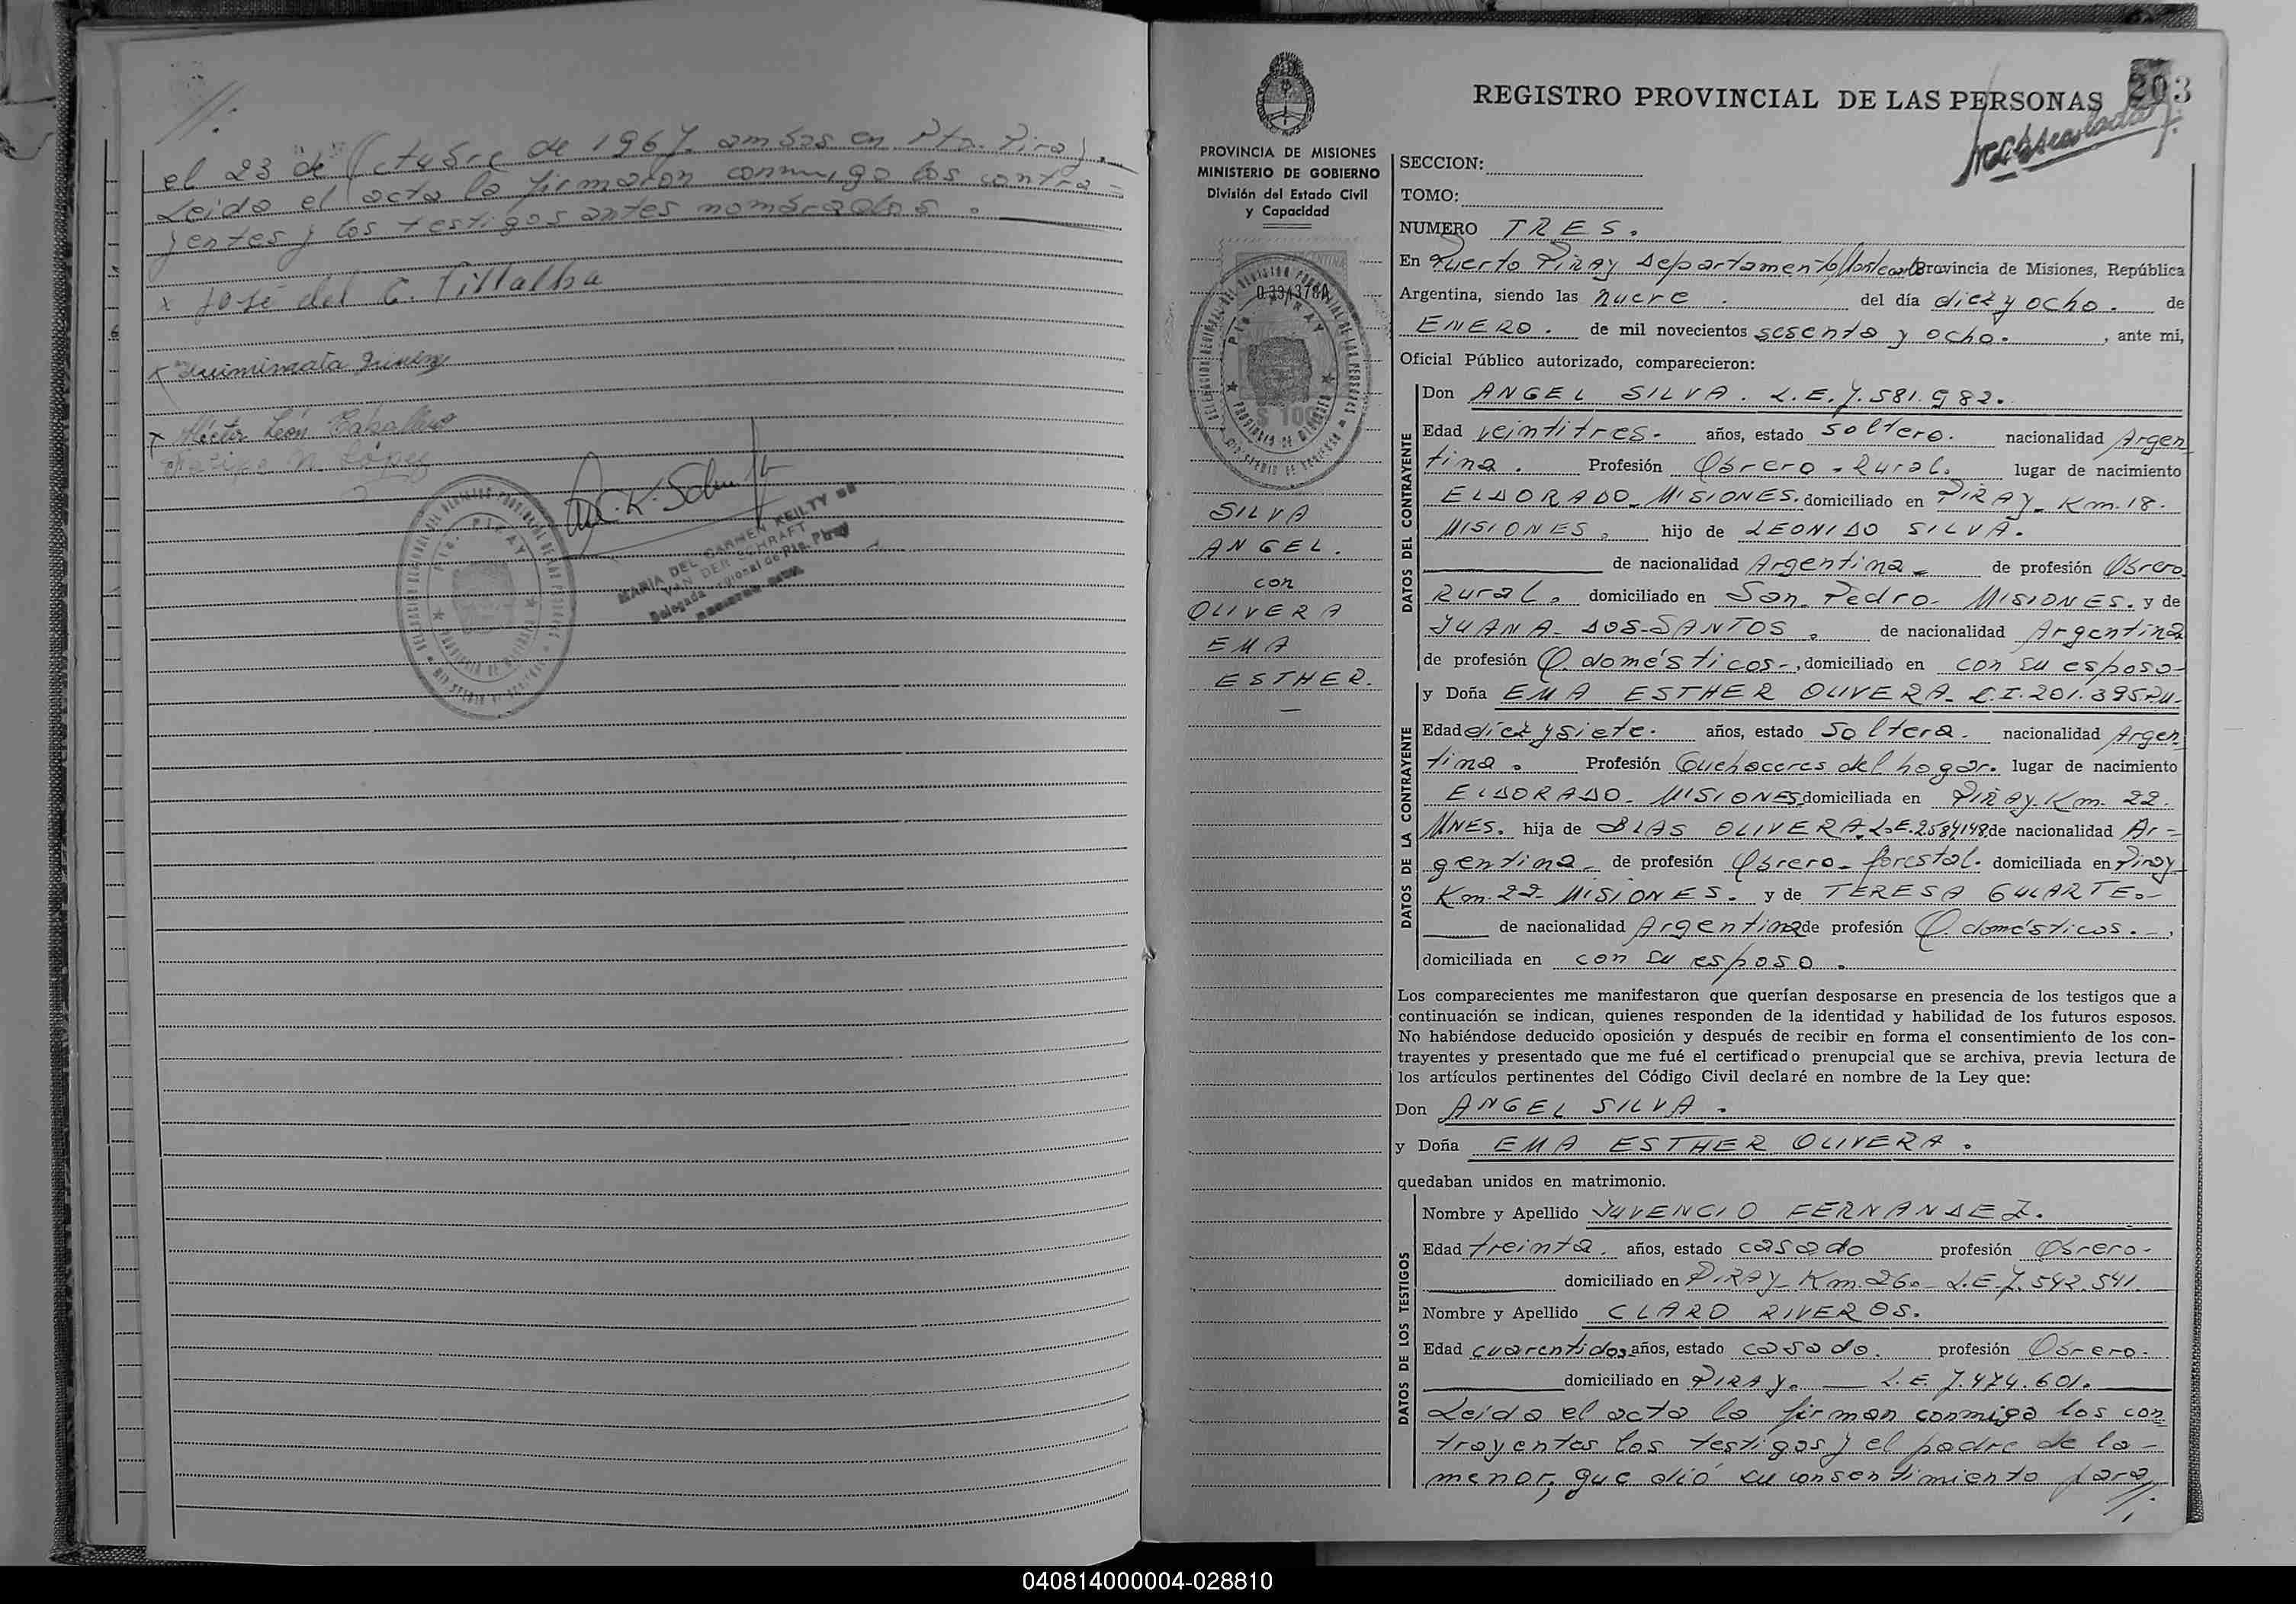 //.
el 23 de Octubre de 1967. ambos en Pto. Piray.
Leido el acta la firmaron conmigo los contra=
yentes y los testigos antes nombrados.
x José del C. Villalba
x
x Héctor León Caballero
Felipe N. López
MARIA DEL CARMEN KEILTY DE
VAN DER SCHRAFT
Delegada Regional de Pto. Piray
REGISTRO PROVINCIAL DE LAS PERSONAS
203
PROVINCIA DE MISIONES
MINISTERIO DE GOBIERNO
División del Estado Civil
y Capacidad
PROVINCIA DE MISIONES
$ 100
SILVA
ANGEL.
con
OLIVERA
EMA
ESTHER.
SECCION:
TOMO:
NUMERO TRES.
En Puerto PIRAY Departamento Montecarlo Provincia de Misiones, República
Argentina, siendo las nueve. del día diez y ocho. de
ENERO. de mil novecientos sesenta y ocho. , ante mi,
Oficial Público autorizado, comparecieron:
DATOS DEL CONTRAYENTE
Don ANGEL SILVA. L.E. 7.581.982.
Edad veintitres. años, estado soltero. nacionalidad Argen
tina. Profesión Obrero-Rural. lugar de nacimiento
ELDORADO-MISIONES. domiciliado en PIRAY-Km.18.
MISIONES, hijo de LEONIDO SILVA.
de nacionalidad Argentina- de profesión Obrero
Rural. domiciliado en San-Pedro-MISIONES. y de
JUANA-DOS-SANTOS. de nacionalidad Argentina
de profesión Q. domésticos-, domiciliado en con su esposo-
DATOS DE LA CONTRAYENTE
y Doña EMA ESTHER OLIVERA-C.I.201.395
Edad diez y siete. años, estado Soltera. nacionalidad Argen
tina. Profesión Quehaceres del hogar. lugar de nacimiento
ELDORADO-MISIONES domiciliada en PIRAY-Km. 22.
MNES. hija de BLAS OLIVERA. L.E.2584148 de nacionalidad Ar-
gentina- de profesión Obrero-forestal. domiciliada en Piray
Km.22-MISIONES. y de TERESA GULARTE.-
de nacionalidad Argentina de profesión Q. domésticos.-,
domiciliada en con su esposo.
Los comparecientes me manifestaron que querían desposarse en presencia de los testigos que a
continuación se indican, quienes responden de la identidad y habilidad de los futuros esposos.
No habiéndose deducido oposición y después de recibir en forma el consentimiento de los con-
trayentes y presentado que me fué el certificado prenupcial que se archiva, previa lectura de
los artículos pertinentes del Código Civil declaré en nombre de la Ley que:
Don ANGEL SILVA.
y Doña EMA ESTHER OLIVERA.
quedaban unidos en matrimonio.
DATOS DE LOS TESTIGOS
Nombre y Apellido JUVENCIO FERNANDEZ.
Edad treinta. años, estado casado profesión Obrero-
domiciliado en PIRAY-Km.26.- L.E.7.542.541.
Nombre y Apellido CLARO RIVEROS.
Edad cuarentidos años, estado casado. profesión Obrero.
domiciliado en PIRAY. — L.E. 7.474.601.
Leido el acta la firman conmigo los con
trayentes los testigos y el padre de la-
menor, que dió su consentimiento para
//.
040814000004-028810